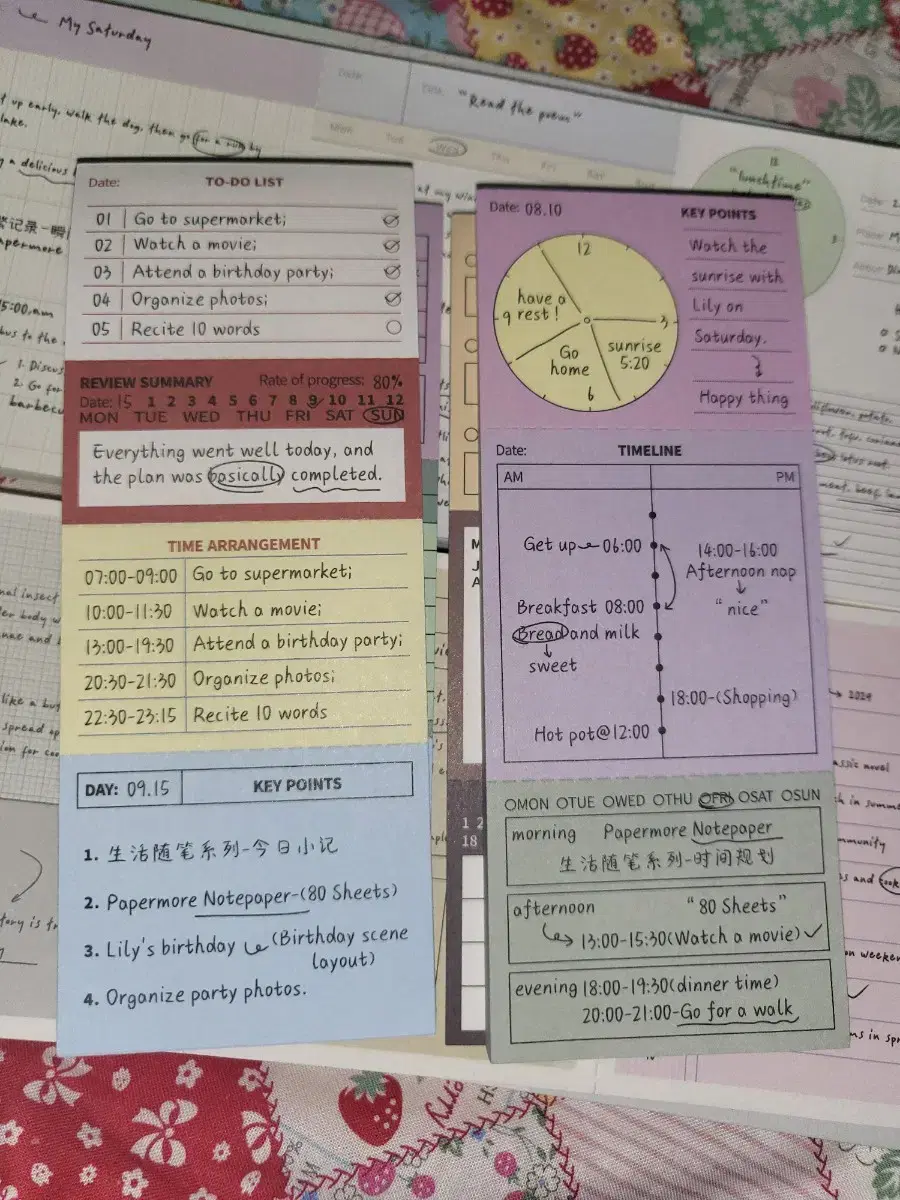 My Saturday
up early, walk the dog, then go for a run by
lake.
a delicious
Date:
"Read the poem"
"lunchtime"
Date: TO-DO LIST
01 Go to supermarket;
02 Watch a movie;
03 Attend a birthday party;
04 Organize photos;
05 Recite 10 words
REVIEW SUMMARY Rate of progress: 80%
Date: 15 1 2 3 4 5 6 7 8 9 10 11 12
MON TUE WED THU FRI SAT SUN
Everything went well today, and
the plan was basically completed.
TIME ARRANGEMENT
07:00-09:00 Go to supermarket;
10:00-11:30 Watch a movie;
13:00-19:30 Attend a birthday party;
20:30-21:30 Organize photos;
22:30-23:15 Recite 10 words
DAY: 09.15 KEY POINTS
1. 生活随笔系列-今日小记
2. Papermore Notepaper-(80 Sheets)
3. Lily's birthday (Birthday scene
layout)
4. Organize party photos.
Date: 08.10 KEY POINTS
12
3
6
9
have a
rest!
Go
home
sunrise
5:20
Watch the
sunrise with
Lily on
Saturday.
Happy thing
Date: TIMELINE
AM PM
Get up 06:00
14:00-16:00
Afternoon nap
Breakfast 08:00
"nice"
Bread and milk
sweet
18:00-(Shopping)
Hot pot@12:00
OMON OTUE OWED OTHU OFRI OSAT OSUN
morning Papermore Notepaper
生活随笔系列-时间规划
afternoon "80 Sheets"
13:00-15:30(Watch a movie)
evening 18:00-19:30(dinner time)
20:00-21:00-Go for a walk
2024